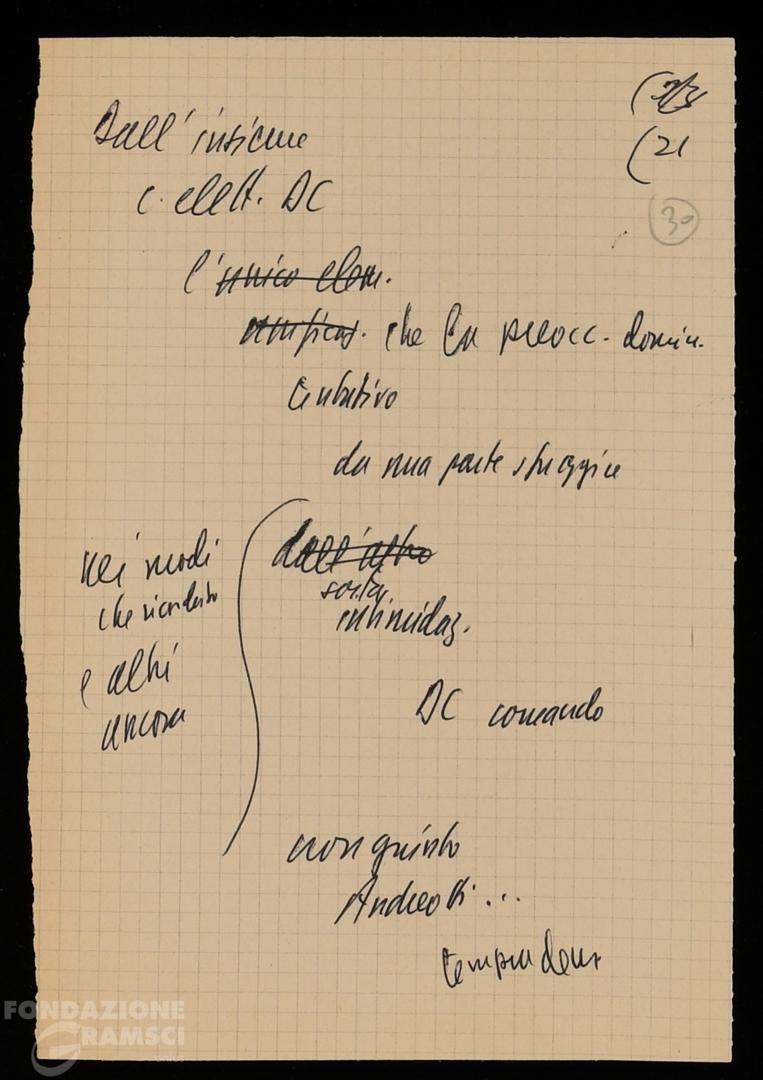 (21
30
Dall'insieme
c. elett. DC
l'unico elem.
unificaz. che ha preocc. domin.
tentativo
da una parte sfuggire
dall'altro
sorta
intimidaz.
nei modi
che ricordato
e altri
ancora
DC comando
non quinto
Andreotti...
FONDAZIONE
GRAMSCI
onlus